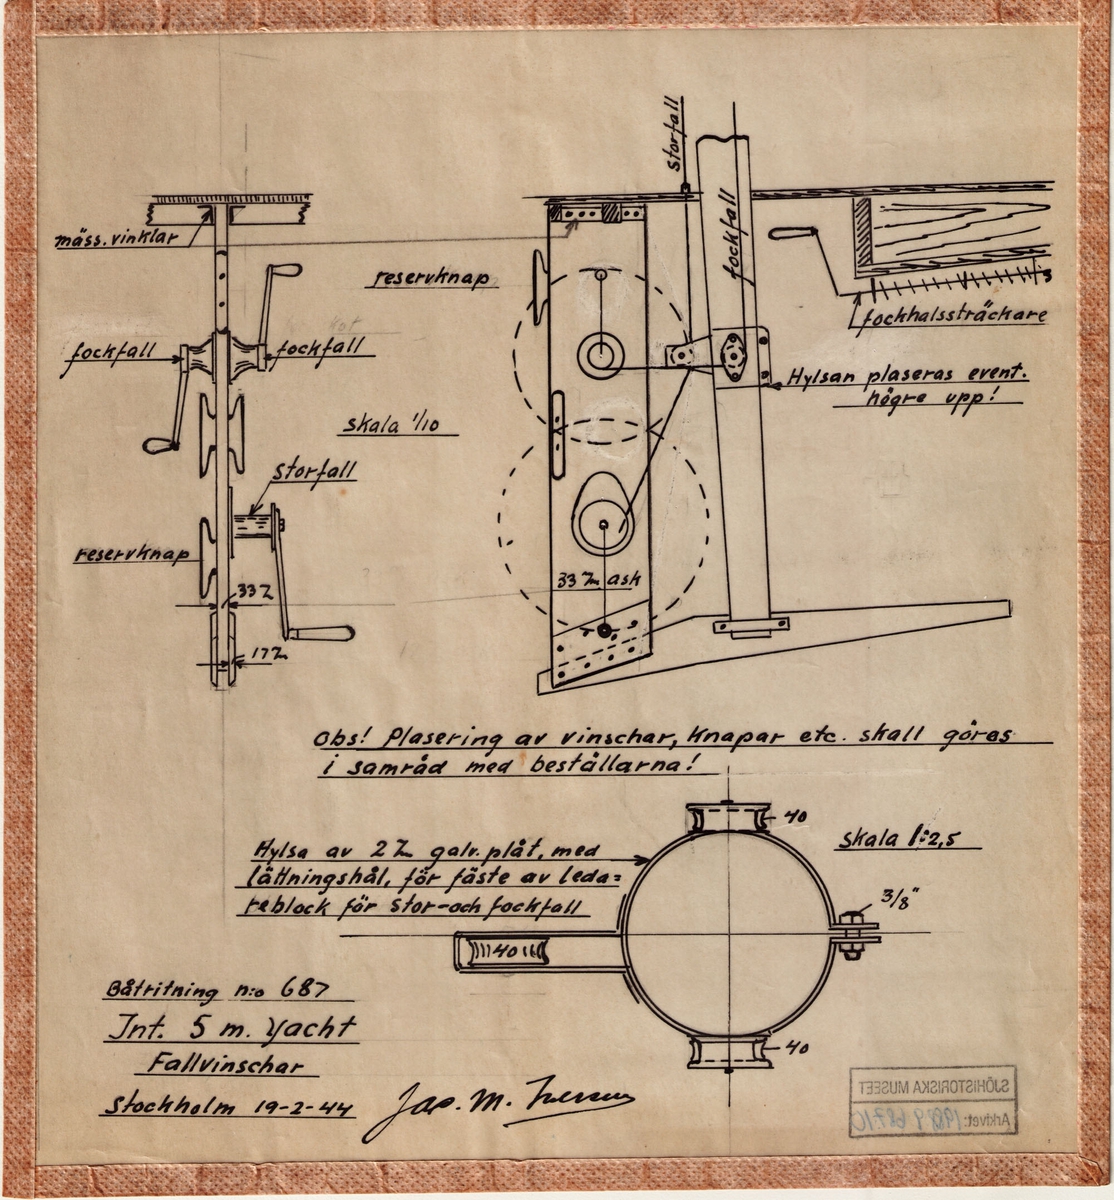 mäss. vinklar
fockfall
fockfall
storfall
reservknap
33 Z
17 Z
reservknap
skala 1/10
storfall
fockfall
fockhalssträckare
Hylsan plaseras event.
högre upp!
33 Zm ask
obs! Plasering av vinschar, knapar etc. skall göras
i samråd med beställarna!
Hylsa av 2 Zm galv. plåt, med
lättningshål, för fäste av leda=
reblock för stor-och fockfall
40
skala 1:2,5
3/8"
40
40
Båtritning n:o 687
Int. 5 m. Yacht
Fallvinschar
Stockholm 19-2-44
Jac. M. Iversen
SJÖHISTORISKA MUSEET
Arkivet: